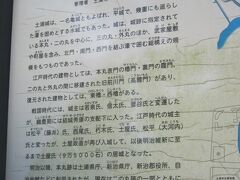 管理者 土浦
土浦城は、一名亀城ともよばれ、平城で、幾重にも巡らし
た濠を固めとする水城でもあった。城は、城跡に指定されて
いる本丸・二の丸を中心に、三の丸・外丸のほか、武家屋敷
や町屋を含み、北門・南門・西門を結ぶ濠で囲む総構えの規
模をもつものであった。
江戸時代の建物としては、本丸表門の櫓門・裏門の霞門、
二の丸と外丸の間に移建された旧前川門(高麗門)があり、
復元された建物としては、東櫓・西櫓がある。
戦国時代には、城主は若泉氏、信太氏、菅谷氏と変遷した
が、やがて結城氏の支配下に入った。江戸時代の城主
は松平(藤井)氏、西尾氏、朽木氏、土屋氏、松平(大河内)
氏と変わり、土屋政直が再び入封して、以後明治維新に至
るまで土屋氏(9万5000石)の居城となった。
明治以降、本丸跡は土浦県庁、新治県庁、新治郡役所、自